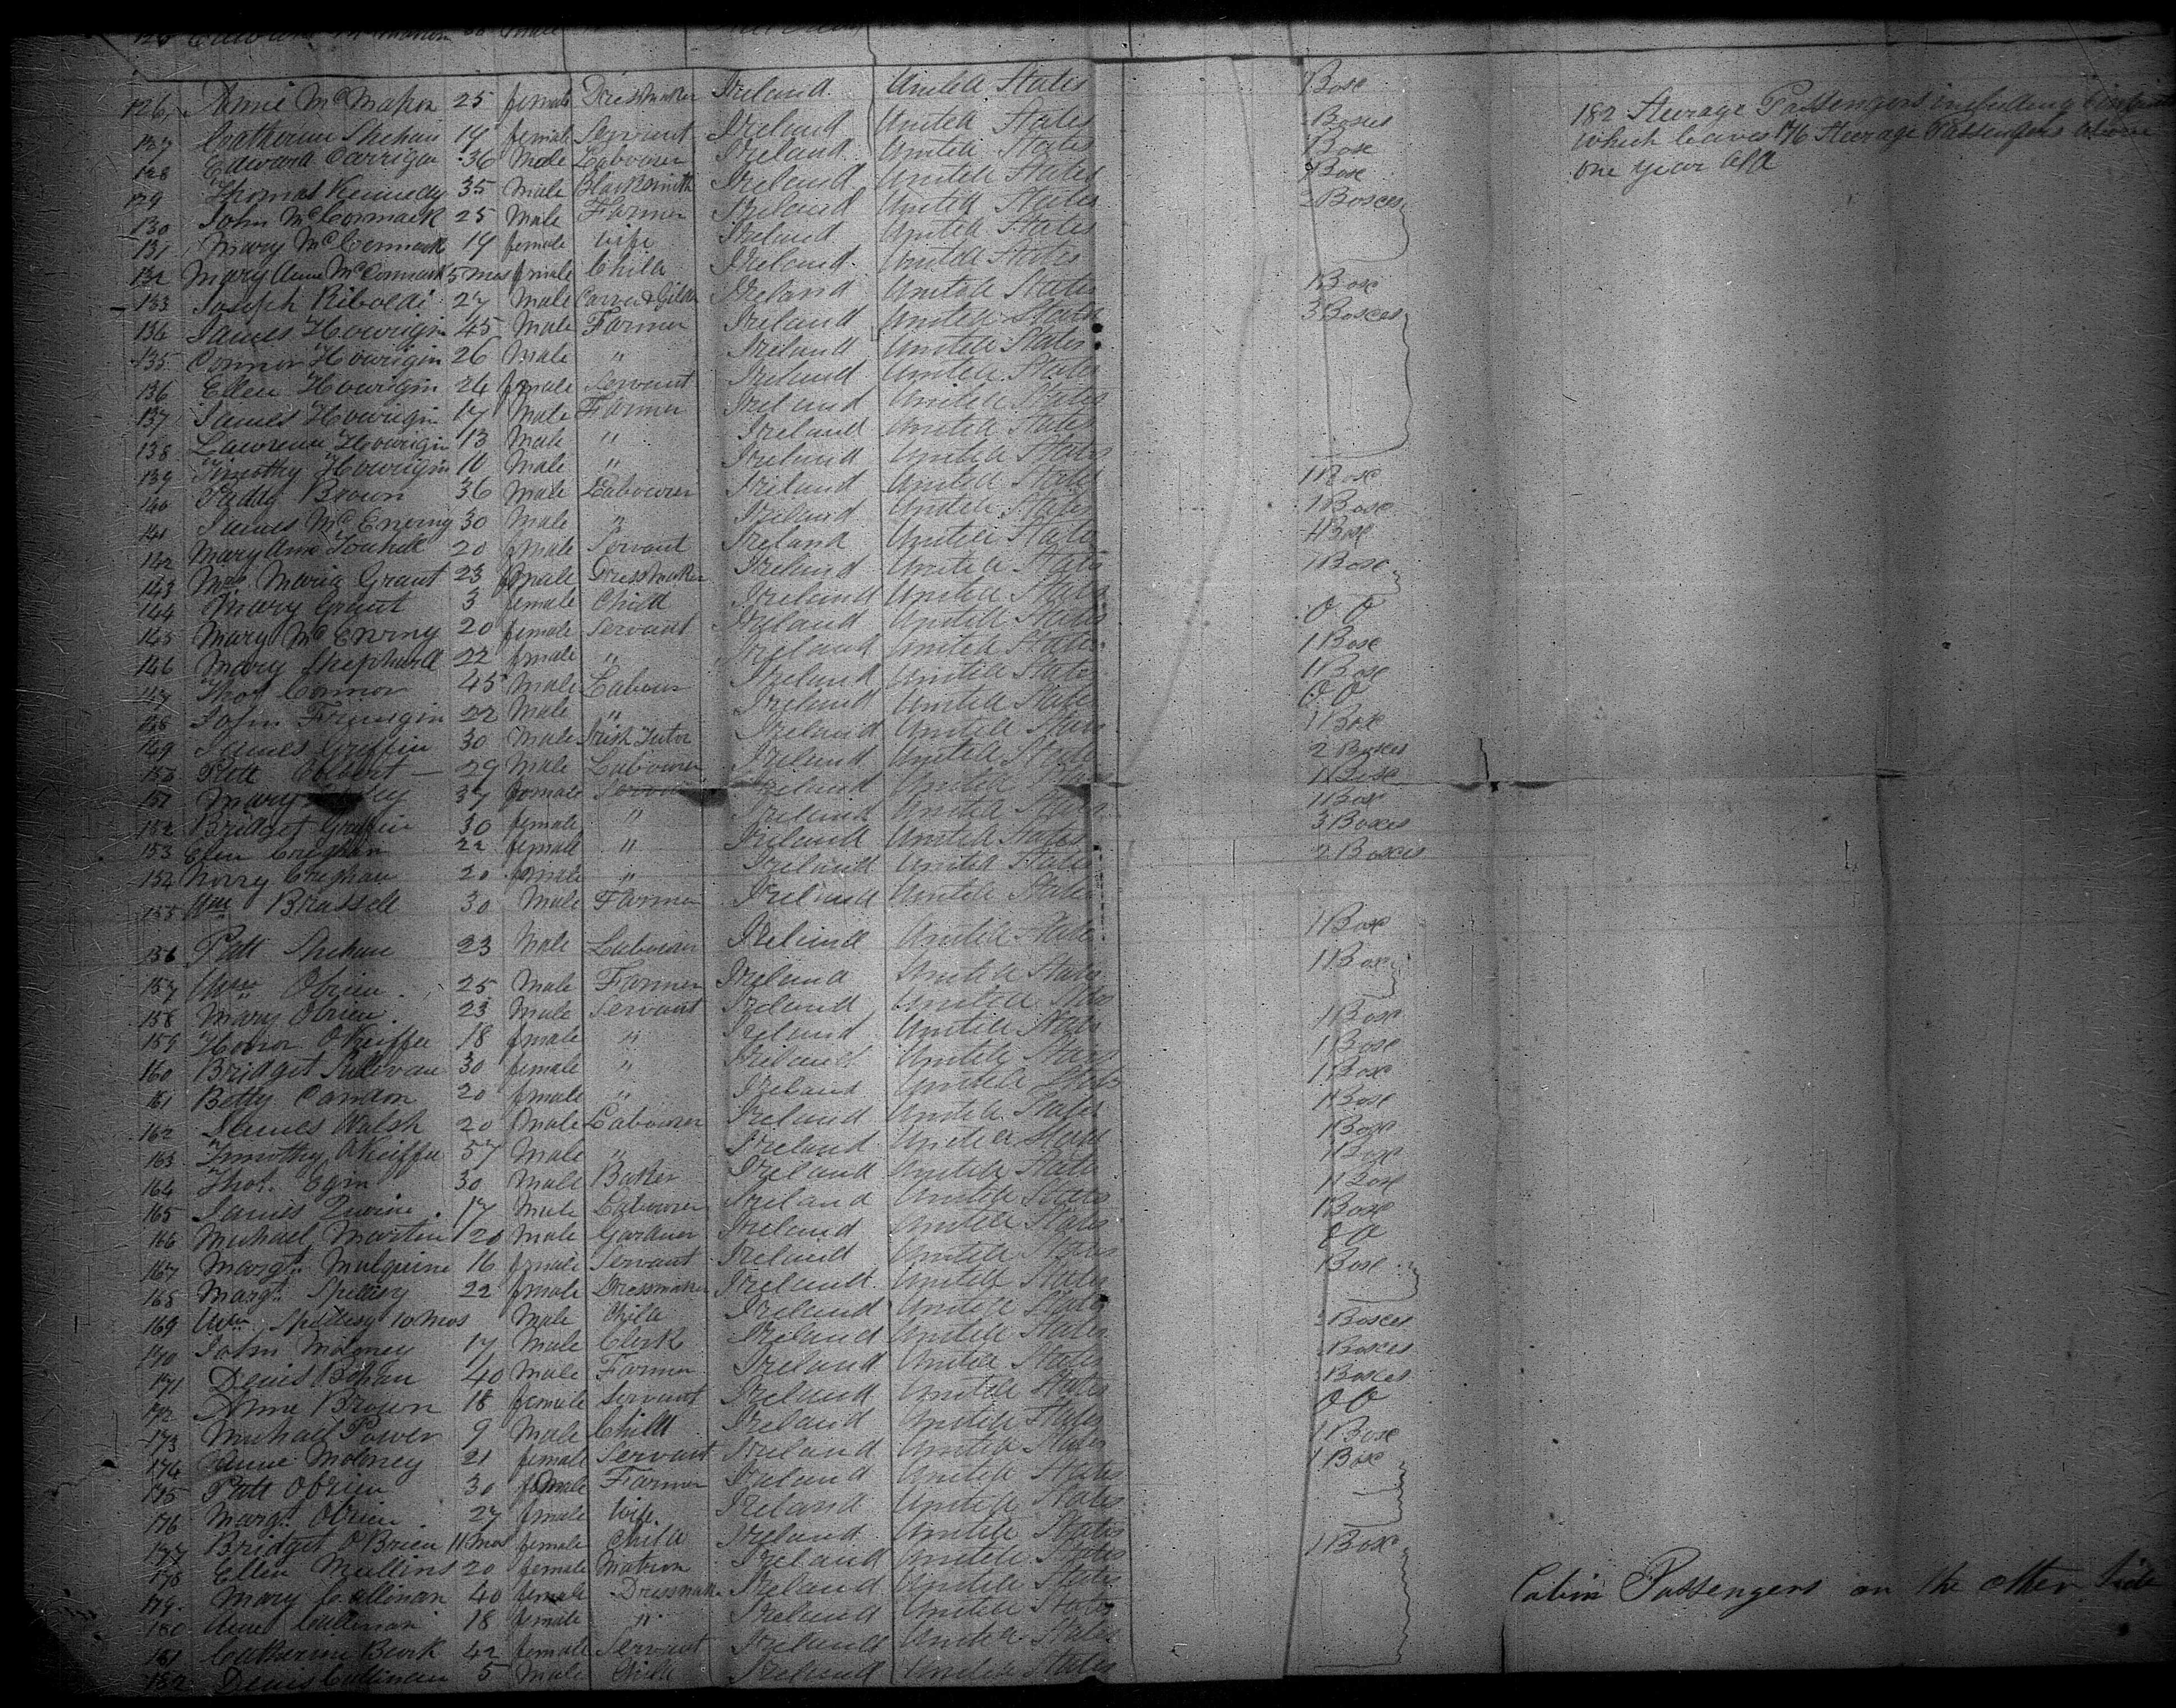 126 Annie McMahon 25 female DressMaker Ireland United States 1 Box
182 Steerage Passengers including
127 Catherine Shehan 17 female Servant Ireland United States Boxes
which leaves 176 Steerage Passengers above
128 Edward Carrigan 36 Male Labourer Ireland United States 1 Box
one year old
129 Thomas Kennedy 35 Male Blacksmith Ireland United States 1 Box
130 John McCormack 25 Male Farmer Ireland United States 2 Boxes
131 Mary McCormack 19 female wife Ireland United States
132 Mary Anne McCormack 5 mos female Child Ireland United States
133 Joseph Riboldi 27 Male Carver & Gilder Ireland United States 1 Box
134 James Hourigin 45 Male Farmer Ireland United States 3 Boxes
135 Connor Hourigin 26 Male " Ireland United States
136 Ellen Hourigin 24 female Servant Ireland United States
137 James Hourigin 17 Male Farmer Ireland United States
138 Lawrence Hourigin 13 Male " Ireland United States
139 Timothy Hourigin 10 Male " Ireland United States
140 Paddy Brown 36 Male Labourer Ireland United States 1 Box
141 James McEnerny 30 Male " Ireland United States 1 Box
142 Mary Ann Touhill 20 female Servant Ireland United States 1 Box
143 Mrs. Maria Grant 23 female DressMaker Ireland United States 1 Box
144 Mary Grant 3 female Child Ireland United States
145 Mary McEnerny 20 female Servant Ireland United States 0 0
146 Mary Shephard 22 female " Ireland United States 1 Box
147 Thos Connor 45 Male Labour Ireland United States 1 Box
148 John 22 Male " Ireland United States 0 0
149 James Griffin 30 Male Irish Tutor Ireland United States 1 Box
150 Patt Colbert 29 Male Labourer Ireland United States 2 Boxes
151 Mary 37 female Servant Ireland United States 1 Box
152 Bridget Griffin 30 female " Ireland United States 1 Box
153 Ellen Creghan 22 female " Ireland United States 3 Boxes
154 Norry Creghan 20 female " Ireland United States 2 Boxes
155 Wm Brassell 30 Male Farmer Ireland United States
156 Patt Shehan 23 Male Labourer Ireland United States 1 Box
157 Wm Obrien 25 Male Farmer Ireland United States 1 Box
158 Mary Obrien 23 Male Servant Ireland United States
159 Honor OKeiffe 18 female " Ireland United States 1 Box
160 Bridget Sulivan 30 female " Ireland United States 1 Box
161 Betty Condon 20 female " Ireland United States 1 Box
162 James Walsh 20 Male Labourer Ireland United States 1 Box
163 Timothy OKeiffe 57 Male " Ireland United States 1 Box
164 Thos. Egin 30 Male Baker Ireland United States 1 Box
165 James 17 Male Labourer Ireland United States 1 Box
166 Michael Martin 20 Male Gardner Ireland United States 1 Box
167 Margt. Mulquine 16 female Servant Ireland United States 0 0
168 Margt. Spillesy 22 female Dressmaker Ireland United States Box
169 Wm. Spillesy 10 Mos Male Child Ireland United States
170 John Moloney 17 Male Clerk Ireland United States 2 Boxes
171 Denis Bohan 40 Male Farmer Ireland United States Boxes
172 Anne Brown 18 female Servant Ireland United States Boxes
173 Michael Power 9 Male Child Ireland United States 0 0
174 Anne Moloney 21 female Servant Ireland United States 1 Box
175 Patt Obrien 30 Male Farmer Ireland United States 1 Box
176 Margt. Obrien 27 female Wife Ireland United States
177 Bridget OBrien 11 Mos female Child Ireland United States
178 Ellen Mullins 20 female Matron Ireland United States 1 Box
179 Mary Callinan 40 female Dressmaker Ireland United States
Cabin Passengers on the other side
180 Anne Callinan 18 female " Ireland United States
181 Catherine Burk 42 female Servant Ireland United States
182 Denis Callinan 5 Male Child Ireland United States